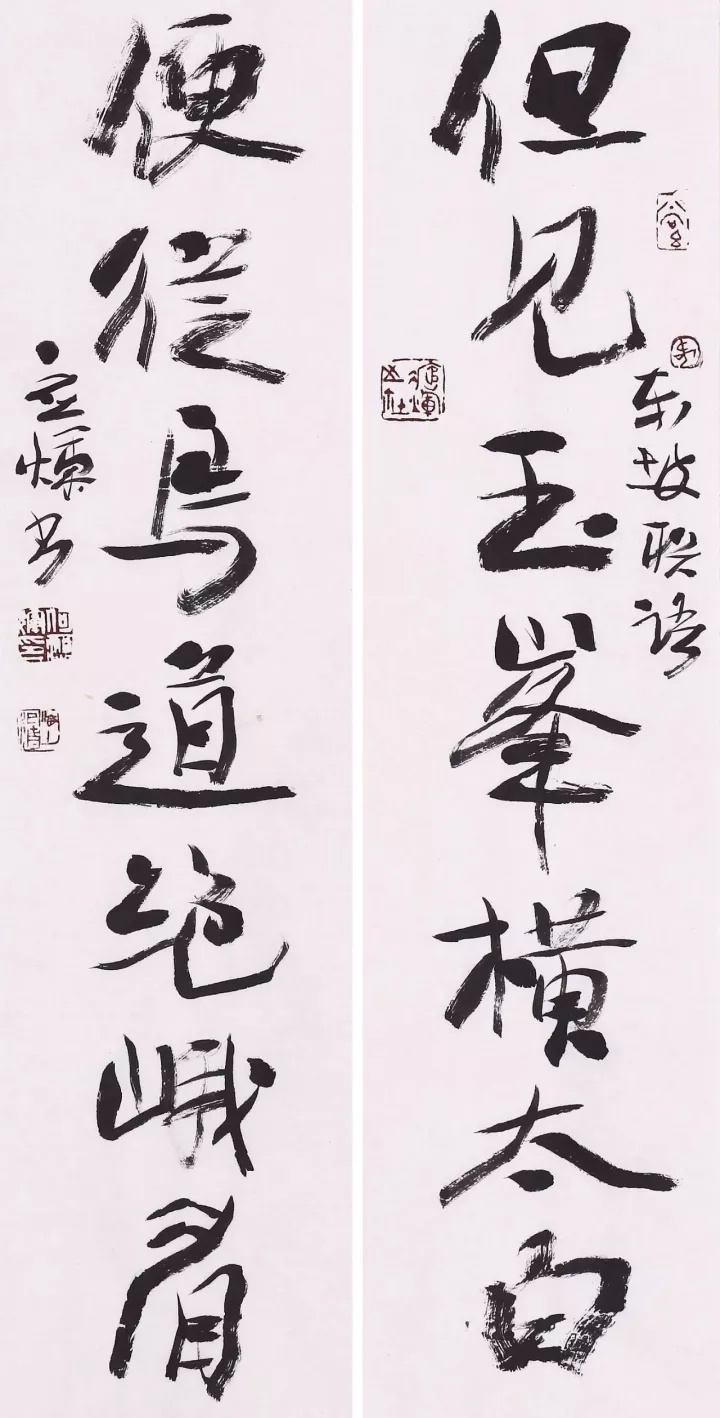 但见玉峯横太白
东坡联语
便从鸟道绝峨眉
立燦书